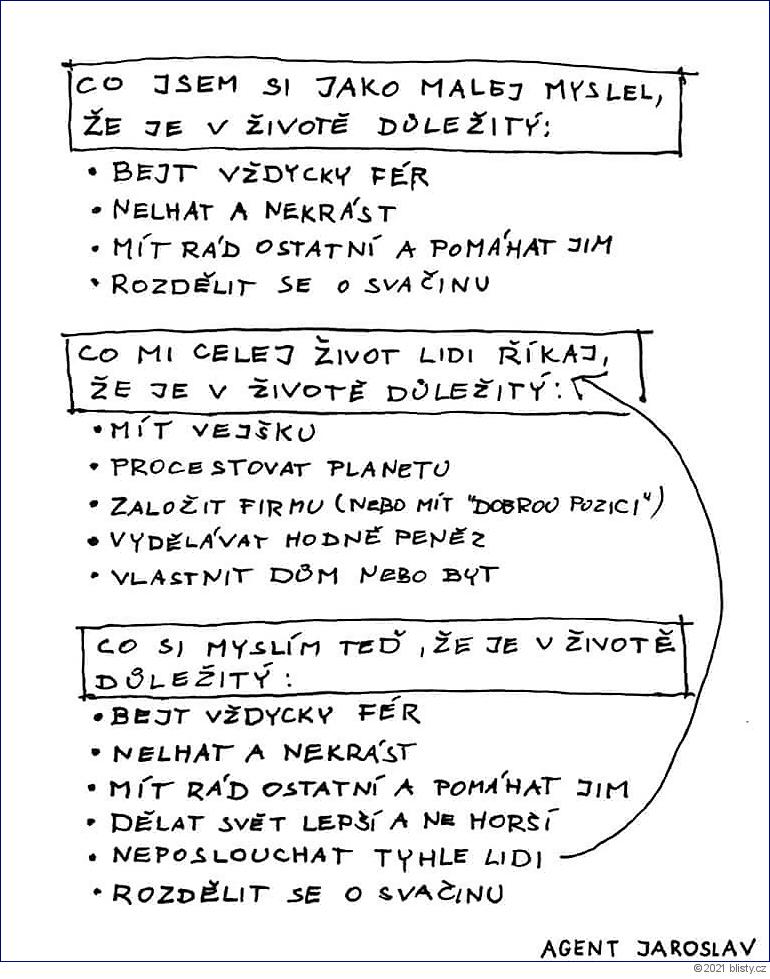 CO JSEM SI JAKO MALEJ MYSLEL,
ŽE JE V ŽIVOTĚ DŮLEŽITÝ:
• BEJT VŽDYCKY FÉR
• NELHAT A NEKRÁST
• MÍT RÁD OSTATNÍ A POMÁHAT JIM
• ROZDĚLIT SE O SVAČINU
CO MI CELEJ ŽIVOT LIDI ŘÍKAJ,
ŽE JE V ŽIVOTĚ DŮLEŽITÝ:
• MÍT VEJŠKU
• PROCESTOVAT PLANETU
• ZALOŽIT FIRMU (NEBO MÍT "DOBROU POZICI")
• VYDĚLÁVAT HODNĚ PENĚZ
• VLASTNIT DŮM NEBO BYT
CO SI MYSLÍM TEĎ, ŽE JE V ŽIVOTĚ
DŮLEŽITÝ:
• BEJT VŽDYCKY FÉR
• NELHAT A NEKRÁST
• MÍT RÁD OSTATNÍ A POMÁHAT JIM
• DĚLAT SVĚT LEPŠÍ A NE HORŠÍ
• NEPOSLOUCHAT TYHLE LIDI
• ROZDĚLIT SE O SVAČINU
AGENT JAROSLAV
© 2021 blisty.cz